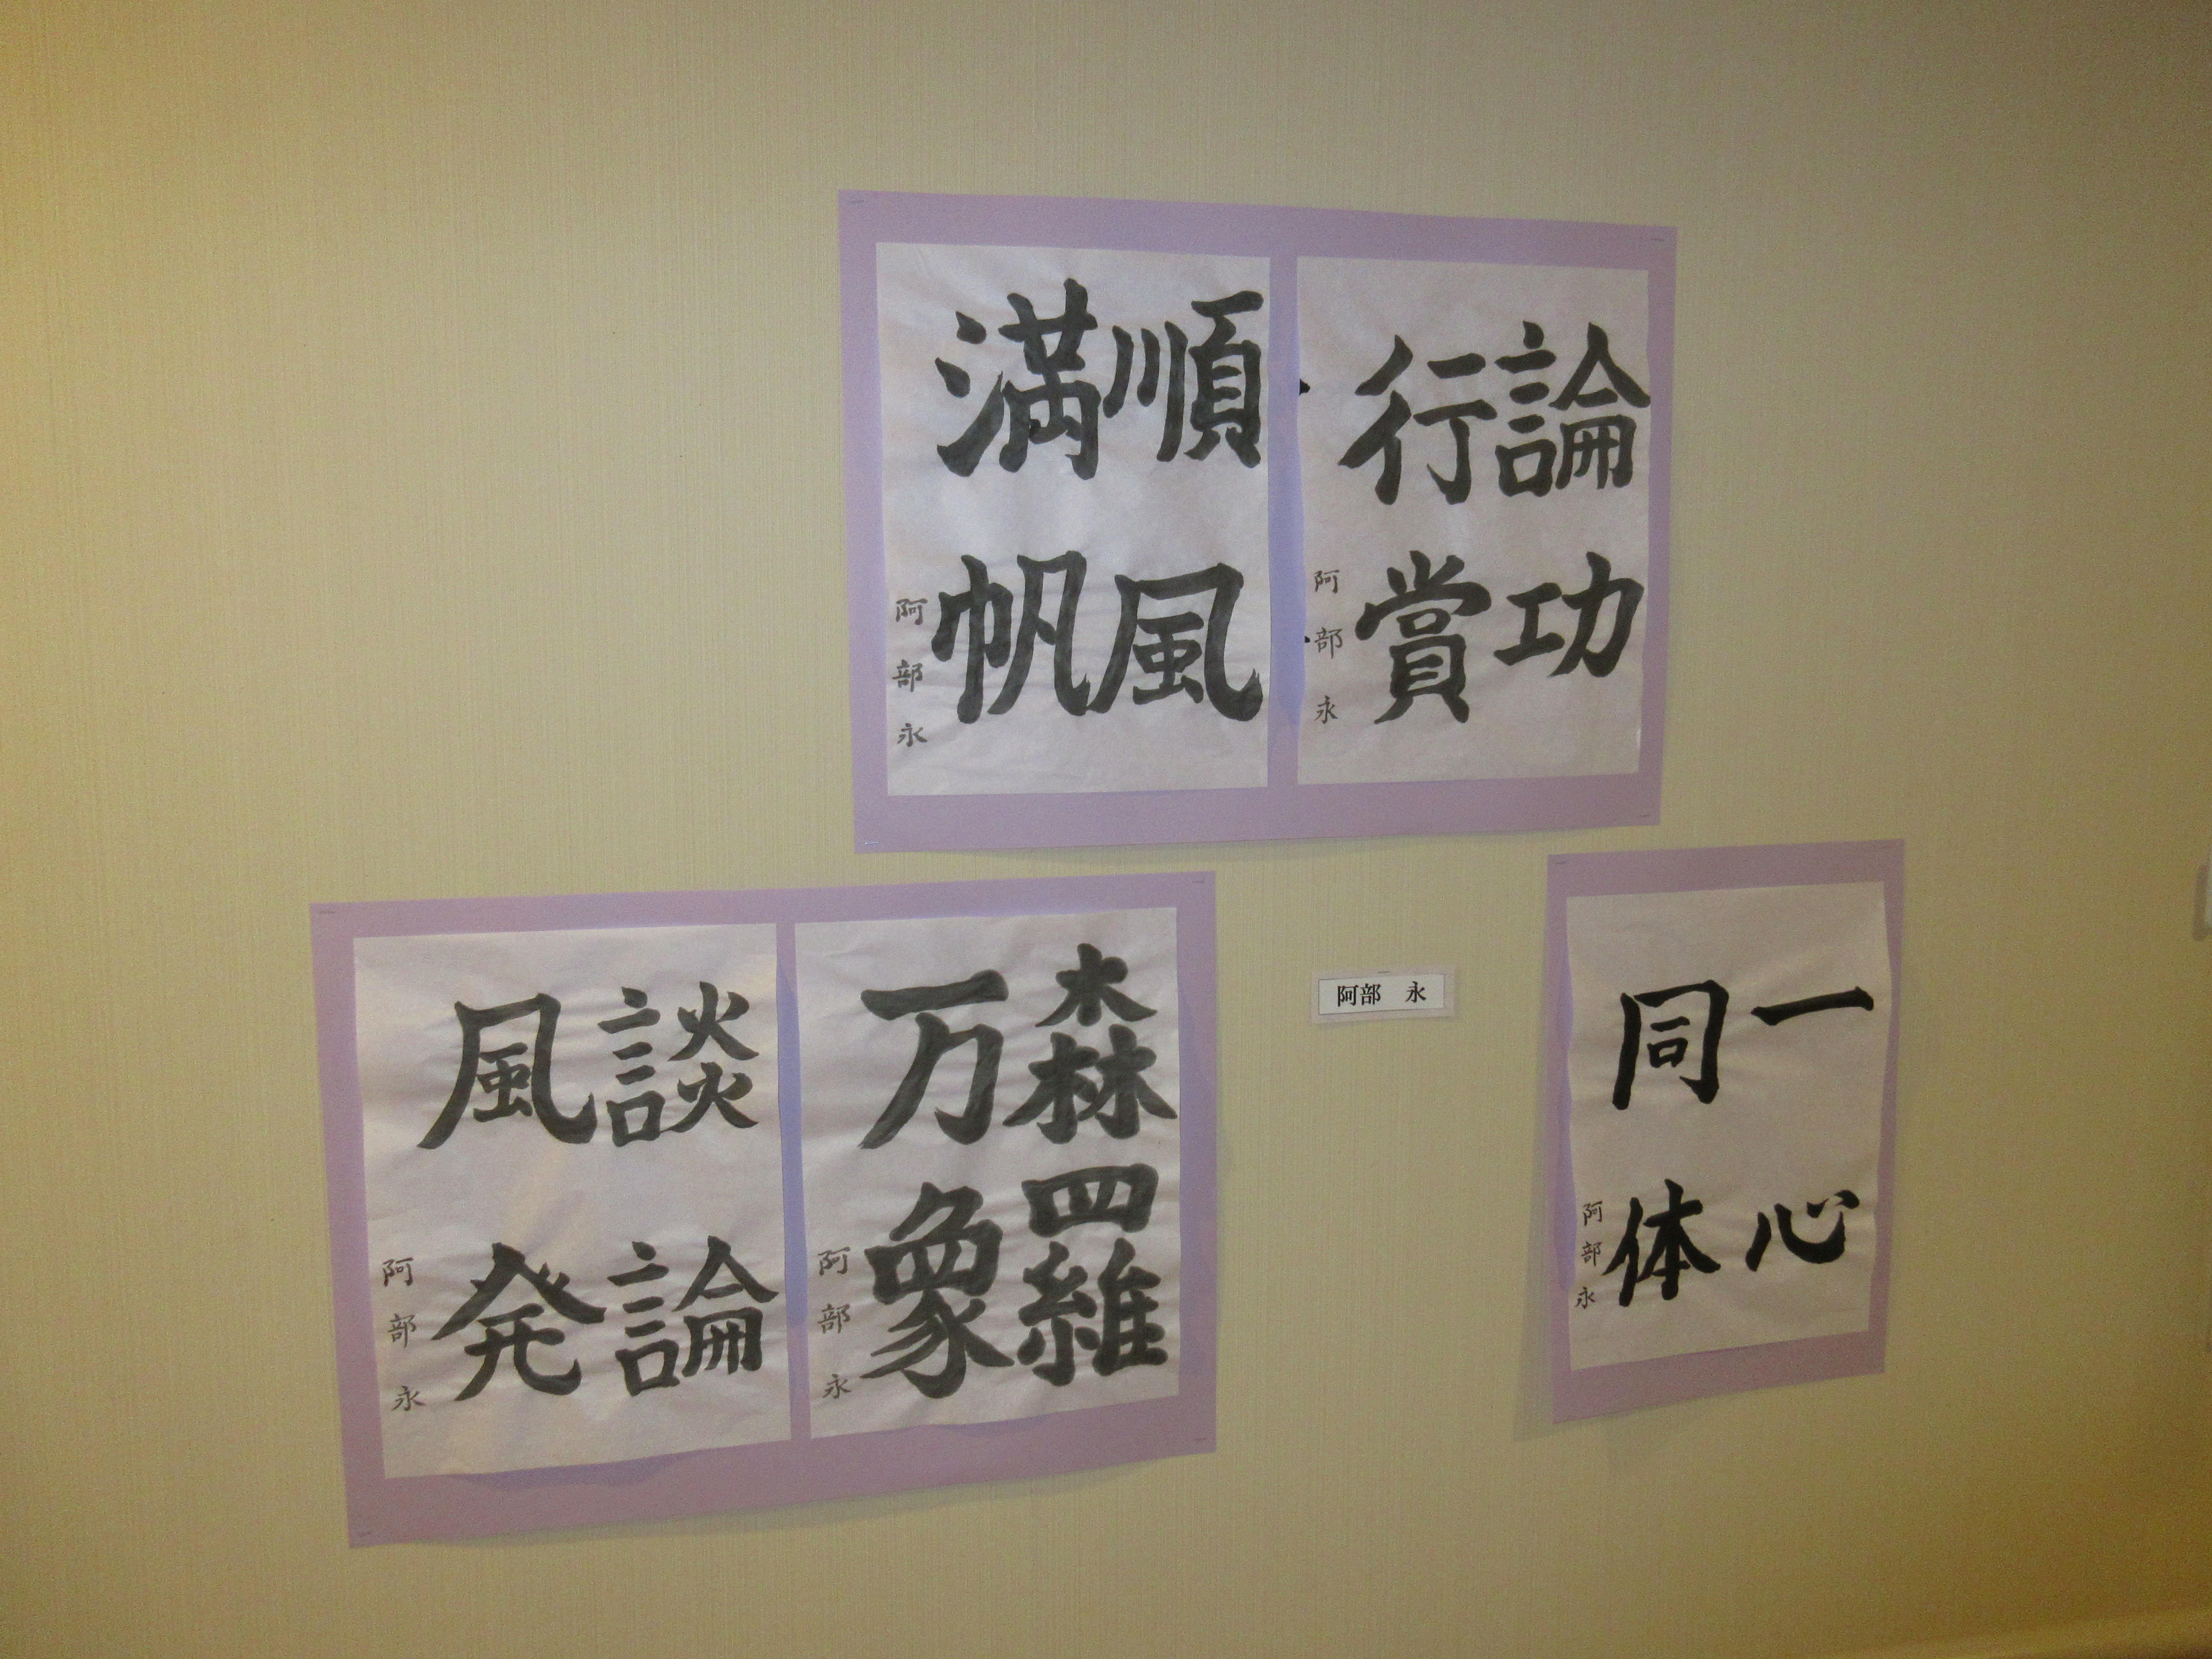 論功
行賞
阿部永
順風
満帆
阿部永
一心
同体
阿部永
阿部　永
森羅
万象
阿部永
談論
風発
阿部永